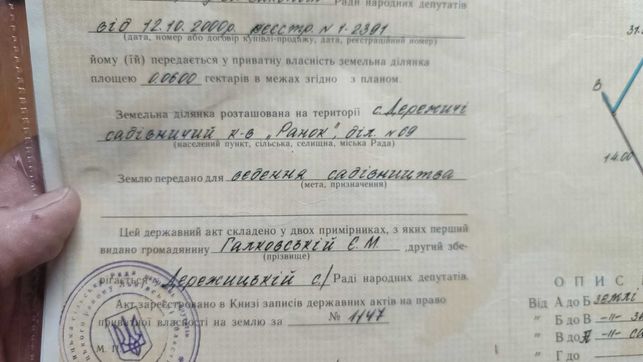 Ради народних депутатів
від 12.10.2000р. реєстр. N 1-2391
(дата, номер або договір купівлі-продажу, дата, реєстраційний номер)
йому (їй) передається у приватну власність земельна ділянка
площею 0,0600 гектарів в межах згідно з планом.
Земельна ділянка розташована на території с. Дережичі
садівничий к-в „Ранок", діл N 09
(населений пункт, сільська, селищна, міська Рада)
Землю передано для ведення садівництва
(мета, призначення)
Цей державний акт складено у двох примірниках, з яких перший
видано громадянину Галковській Є.М ,другий збе-
(прізвище)
рігається Дережицькій с/ Раді народних депутатів.
Акт зареєстровано в Книзі записів державних актів на право
приватної власності на землю за N 1147
М. П.
31.
В
14.00
ОПИС
Від А до Б землі
" Б до В -//-
" В до
" Г до